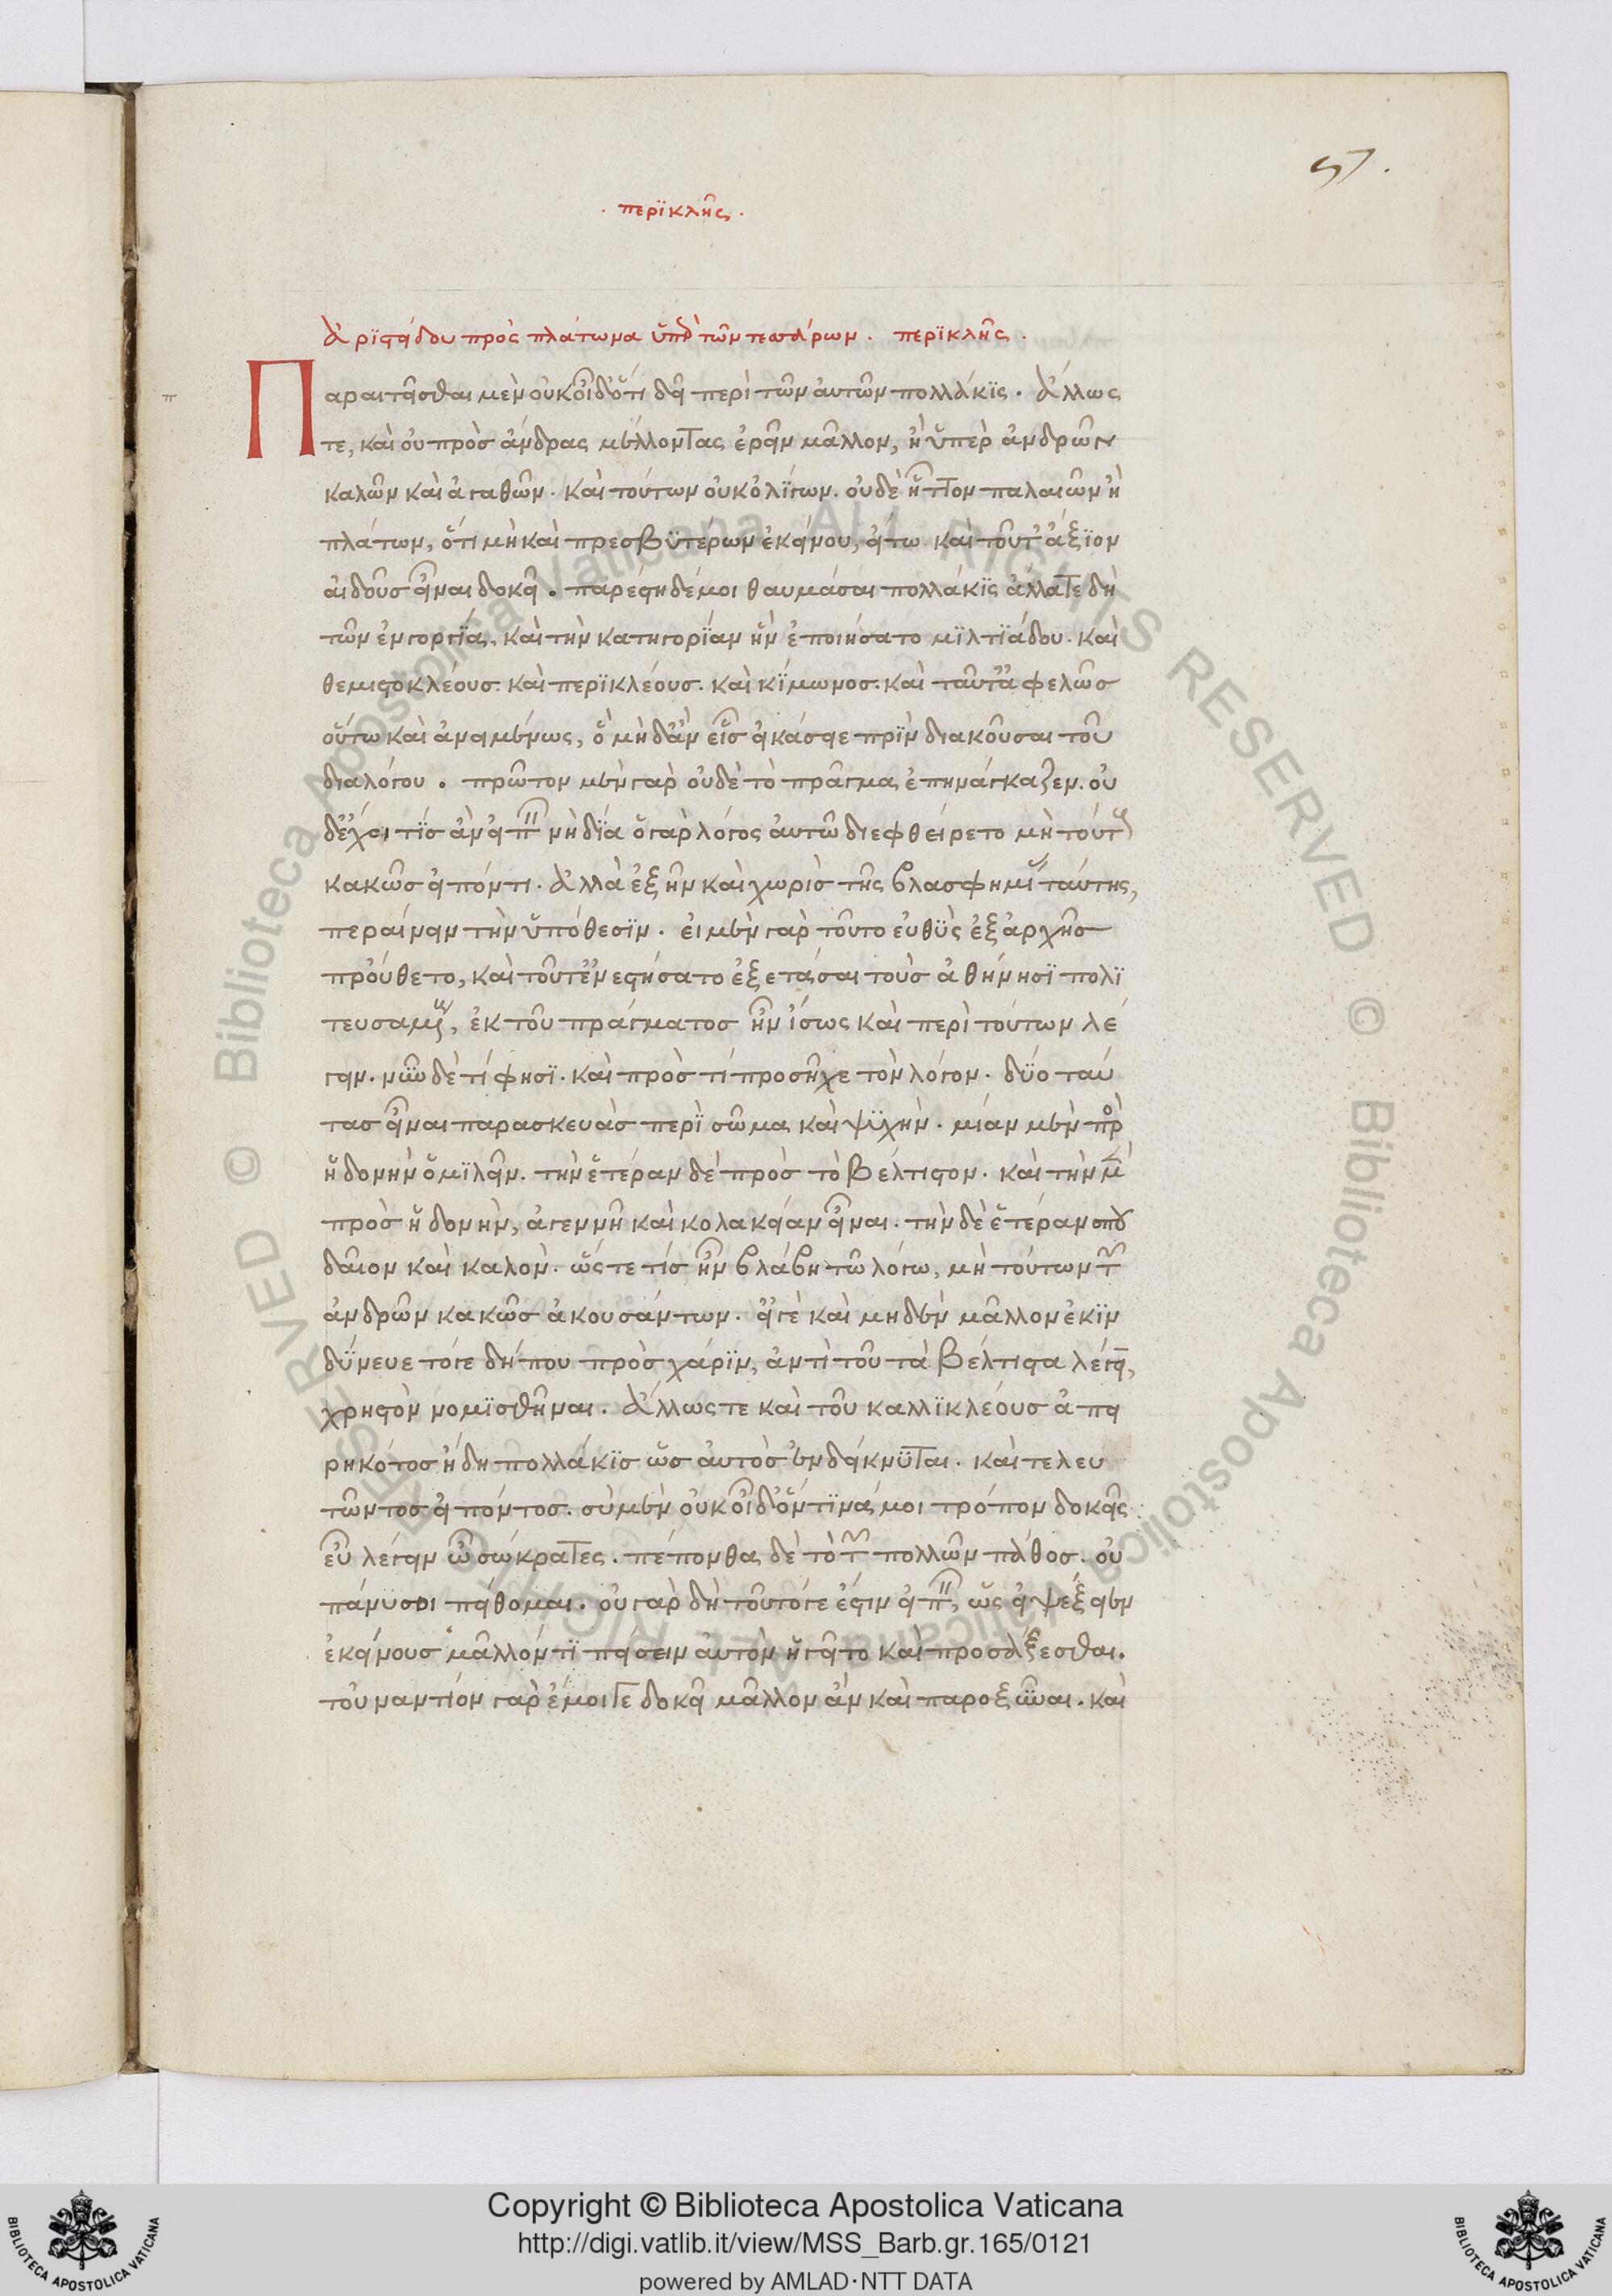 57.
· περϊκλῆς ·
Ἀρϊστείδου πρὸς πλάτωνα ὑπὲρ τῶν τεσσάρων. περϊκλῆς.
Παραιτεῖσθαι μὲν οὐκ οἶδ' ὅτι δεῖ περὶ τῶν αὐτῶν πολλάκϊς. ἄλλως
τε, καὶ οὐ πρὸς ἄνδρας μέλλοντας ἐρεῖν μᾶλλον, ἢ ὑπὲρ ἀνδρῶν
καλῶν καὶ ἀγαθῶν. καὶ τούτων οὐκ ὀλΐγων. οὐδὲ ἧττον παλαιῶν ἢ
πλάτων, ὅτι μὴ καὶ πρεσβϋτέρων ἐκείνου, εἴτω καὶ τοῦτ' ἄξϊον
αἰδοῦς εἶναι δοκεῖ. παρέστη δέ μοι θαυμάσαι πολλάκϊς ἄλλα τε δὴ
τῶν ἐν γοργΐα, καὶ τὴν κατηγορΐαν ἣν ἐποιήσατο μϊλτϊάδου. καὶ
θεμιστοκλέους. καὶ περϊκλέους. καὶ κίμωνος. καὶ ταῦτ' ἀφελῶς
οὕτω καὶ ἀνειμένως, ὃ μὴδ' ἂν εἷς εἰκάσειε πρὶν διακοῦσαι τοῦ
διαλόγου. πρῶτον μὲν γὰρ οὐδὲ τὸ πρᾶγμα ἐπηνάγκαζεν. οὐ
δ' ἔχοι τϊς ἂν εἰπεῖν νὴ δΐα ὁ γὰρ λόγος αὐτῶ διεφθείρετο μὴ τούτους
κακῶς εἰπόντι. ἀλλὰ ἐξῆν καὶ χωρὶς τῆς βλασφημίας ταύτης,
περαίνειν τὴν ὑπόθεσϊν. εἰ μὲν γὰρ τοῦτο εὐθὺς ἐξ ἀρχῆς
προύθετο, καὶ τοῦτ' ἐνεστήσατο ἐξετάσαι τοὺς ἀθήνησϊ πολϊ
τευσαμένους, ἐκ τοῦ πράγματος ἦν ἴσως καὶ περὶ τούτων λέ
γειν. νῦν δὲ τί φησϊ. καὶ πρὸς τί προσῆχε τὸν λόγον. δύο ταύ
τας εἶναι παρασκευὰς περὶ σῶμα καὶ ψϋχήν. μίαν μὲν πρὸς
ἡδονὴν ὁμϊλεῖν. τὴν ἑτέραν δὲ πρὸς τὸ βέλτιστον. καὶ τὴν μὲν
πρὸς ἡδονὴν, ἀγεννῆ καὶ κολακείαν εἶναι. τὴν δὲ ἑτέραν σπου
δαῖον καὶ καλὸν. ὥστε τίς ἦν βλάβη τῶ λόγω, μὴ τούτων τῶν
ἀνδρῶν κακῶς ἀκουσάντων. εἴγε καὶ μηδὲν μᾶλλον ἐκϊν
δύνευε τόγε δήπου πρὸς χάρϊν, ἀντὶ τοῦ τὰ βέλτιστα λέγειν,
χρηστὸν νομϊσθῆναι. ἄλλως τε καὶ τοῦ καλλϊκλέους ἀπει
ρηκότος ἤδη πολλάκϊς ὡς αὐτὸς ἐνδείκνϋται. καὶ τελευ
τῶντος εἰπόντος. σὺ μὲν οὐκ οἶδ' ὅντϊνά μοι τρόπον δοκεῖς
εὖ λέγειν ὦ σώκρατες. πέπονθα δὲ τὸ τῶν πολλῶν πάθος. οὐ
πάνϋ σοι πείθομαι. οὐ γὰρ δὴ τοῦτόγε ἔστιν εἰπεῖν, ὡς εἰ ψέξειεν
ἐκείνους μᾶλλόν τϊ πείσειν αὐτὸν ἡγεῖτο καὶ προσάξεσθαι.
τοὐναντίον γὰρ ἔμοιγε δοκεῖ μᾶλλον ἂν καὶ παροξῦναι. καὶ
Copyright © Biblioteca Apostolica Vaticana
http://digi.vatlib.it/view/MSS_Barb.gr.165/0121
powered by AMLAD·NTT DATA
BIBLIOTECA APOSTOLICA VATICANA
BIBLIOTECA APOSTOLICA VATICANA
© Biblioteca Apostolica Vaticana ALL RIGHTS RESERVED
© Biblioteca Apostolica Vaticana ALL RIGHTS RESERVED